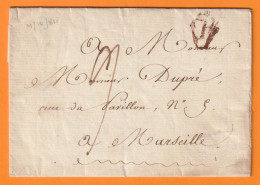 A Monsieur
Monsieur Dupré
rue du Pavillon, N° 5
à Marseille